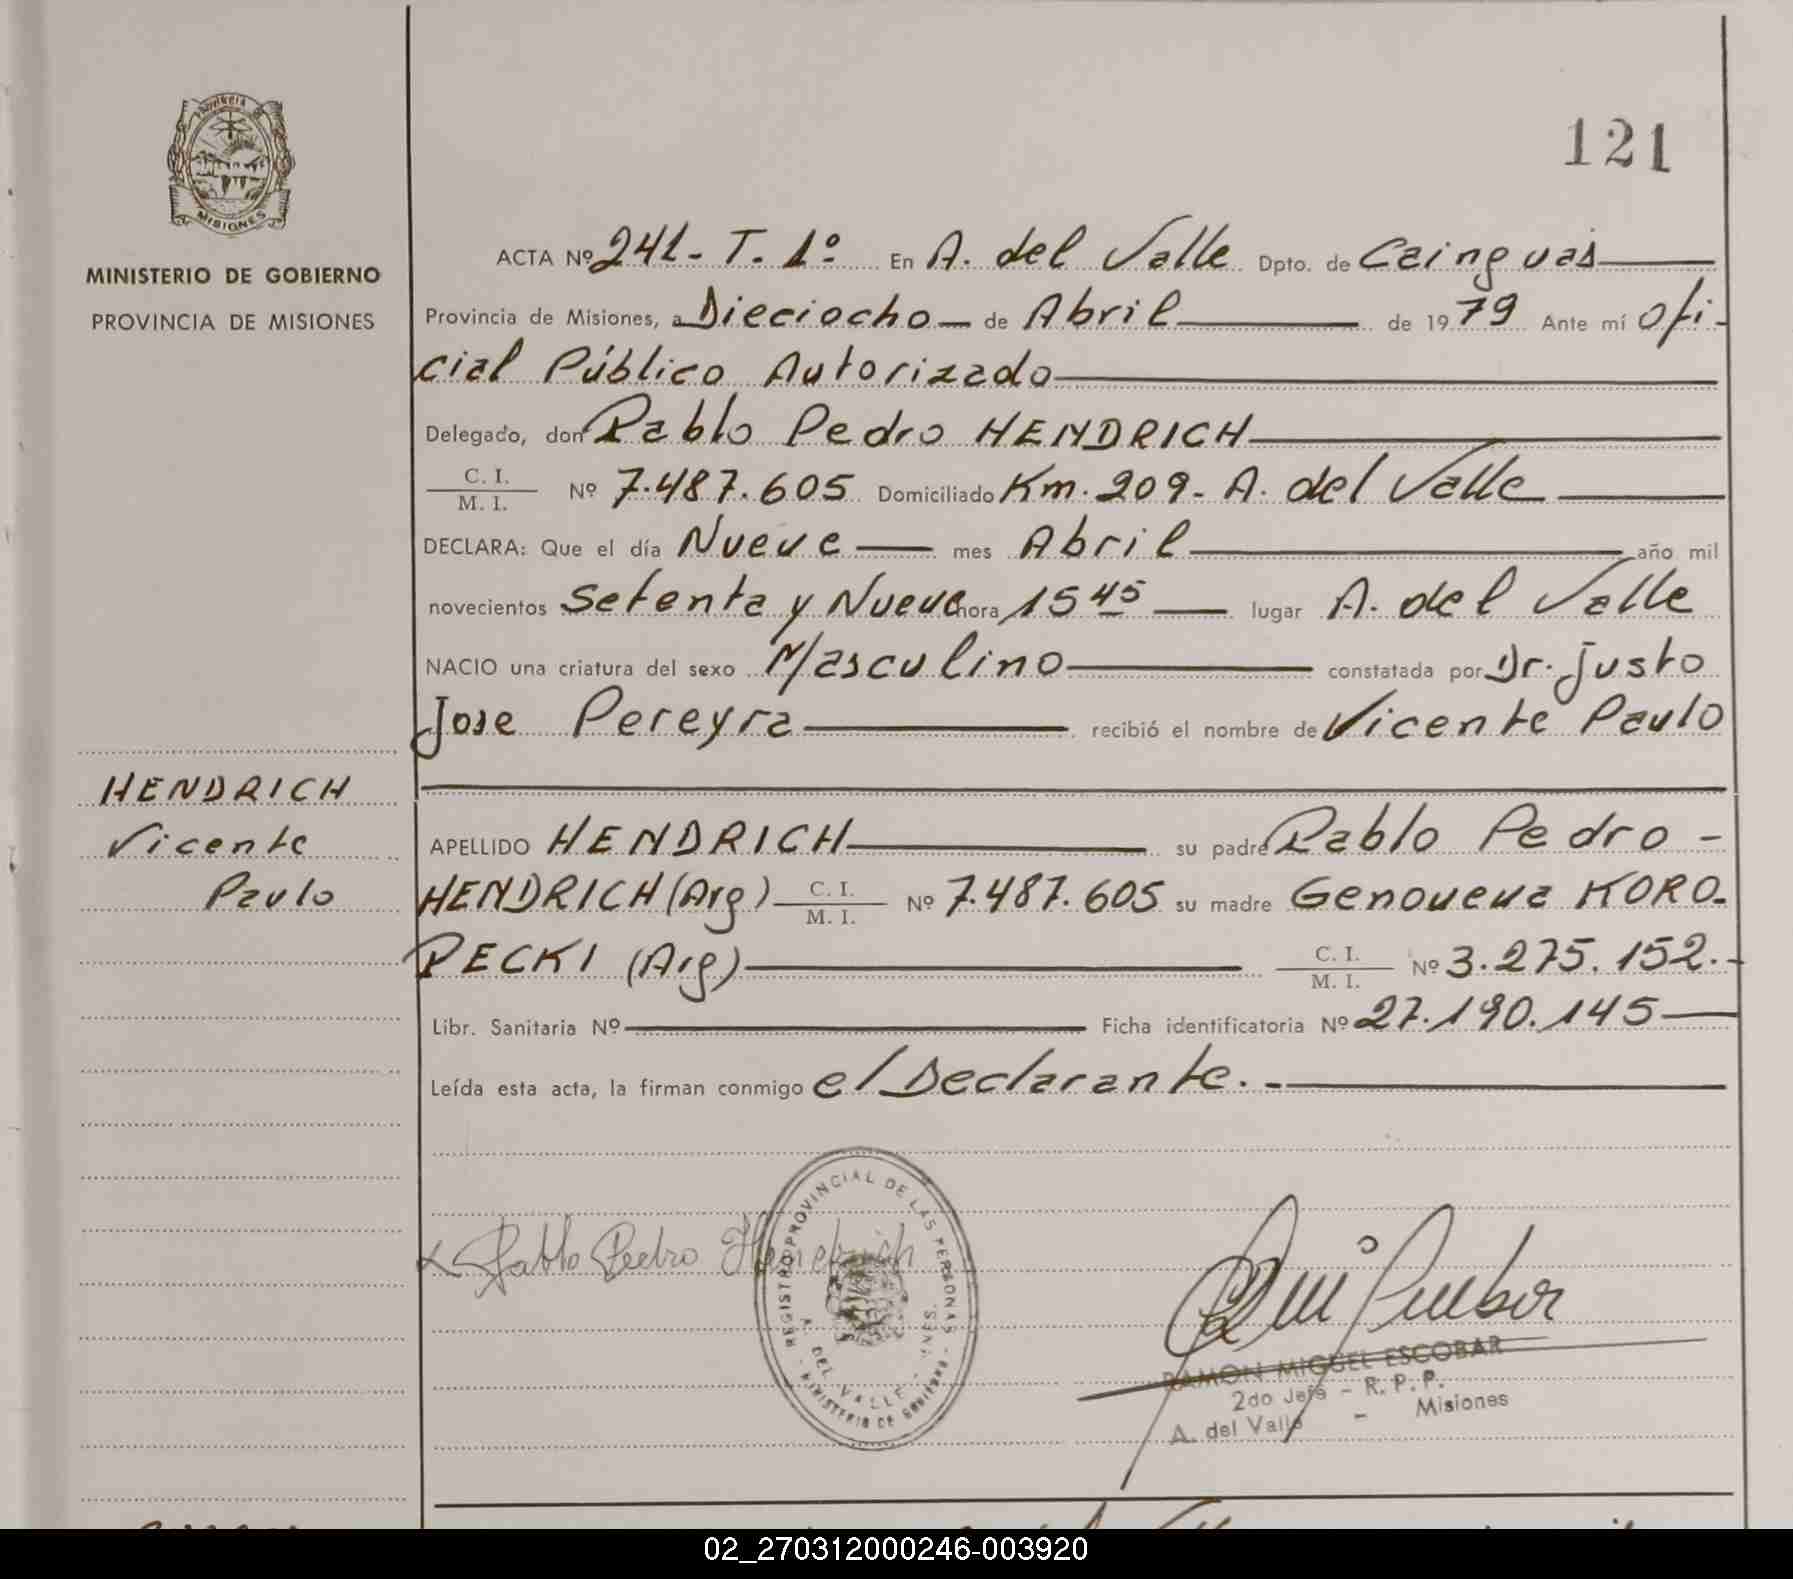 PROVINCIA DE
MISIONES
MINISTERIO DE GOBIERNO
PROVINCIA DE MISIONES
121
ACTA Nº 241- T. 1º En A. del Valle Dpto. de Cainguas
Provincia de Misiones, a Dieciocho de Abril de 1979 Ante mí ofi-
cial Público Autorizado
Delegado, don Pablo Pedro HENDRICH
C. I.
M. I. Nº 7.487.605 Domiciliado Km. 209- A. del Valle
DECLARA: Que el día Nueve mes Abril año mil
novecientos Setenta y Nueve hora 15 45 lugar A. del Valle
NACIO una criatura del sexo Masculino constatada por Dr. Justo
Jose Pereyra recibió el nombre de Vicente Paulo
HENDRICH
Vicente
Paulo
APELLIDO HENDRICH su padre Pablo Pedro -
HENDRICH (Arg) C. I. M. I. Nº 7.487.605 su madre Genoveva KORO-
PECKI (Arg) C. I. M. I. Nº 3.275.152.-
Libr. Sanitaria Nº Ficha identificatoria Nº 27.190.145
Leída esta acta, la firman conmigo el Declarante. -
Pablo Pedro Hendrich
REGISTRO PROVINCIAL DE LAS PERSONAS - MINISTERIO DE GOBIERNO -
A. DEL VALLE - MNES.
RAMON MIGUEL ESCOBAR
2do Jefe - R. P. P.
A. del Valle - Misiones
02_270312000246-003920